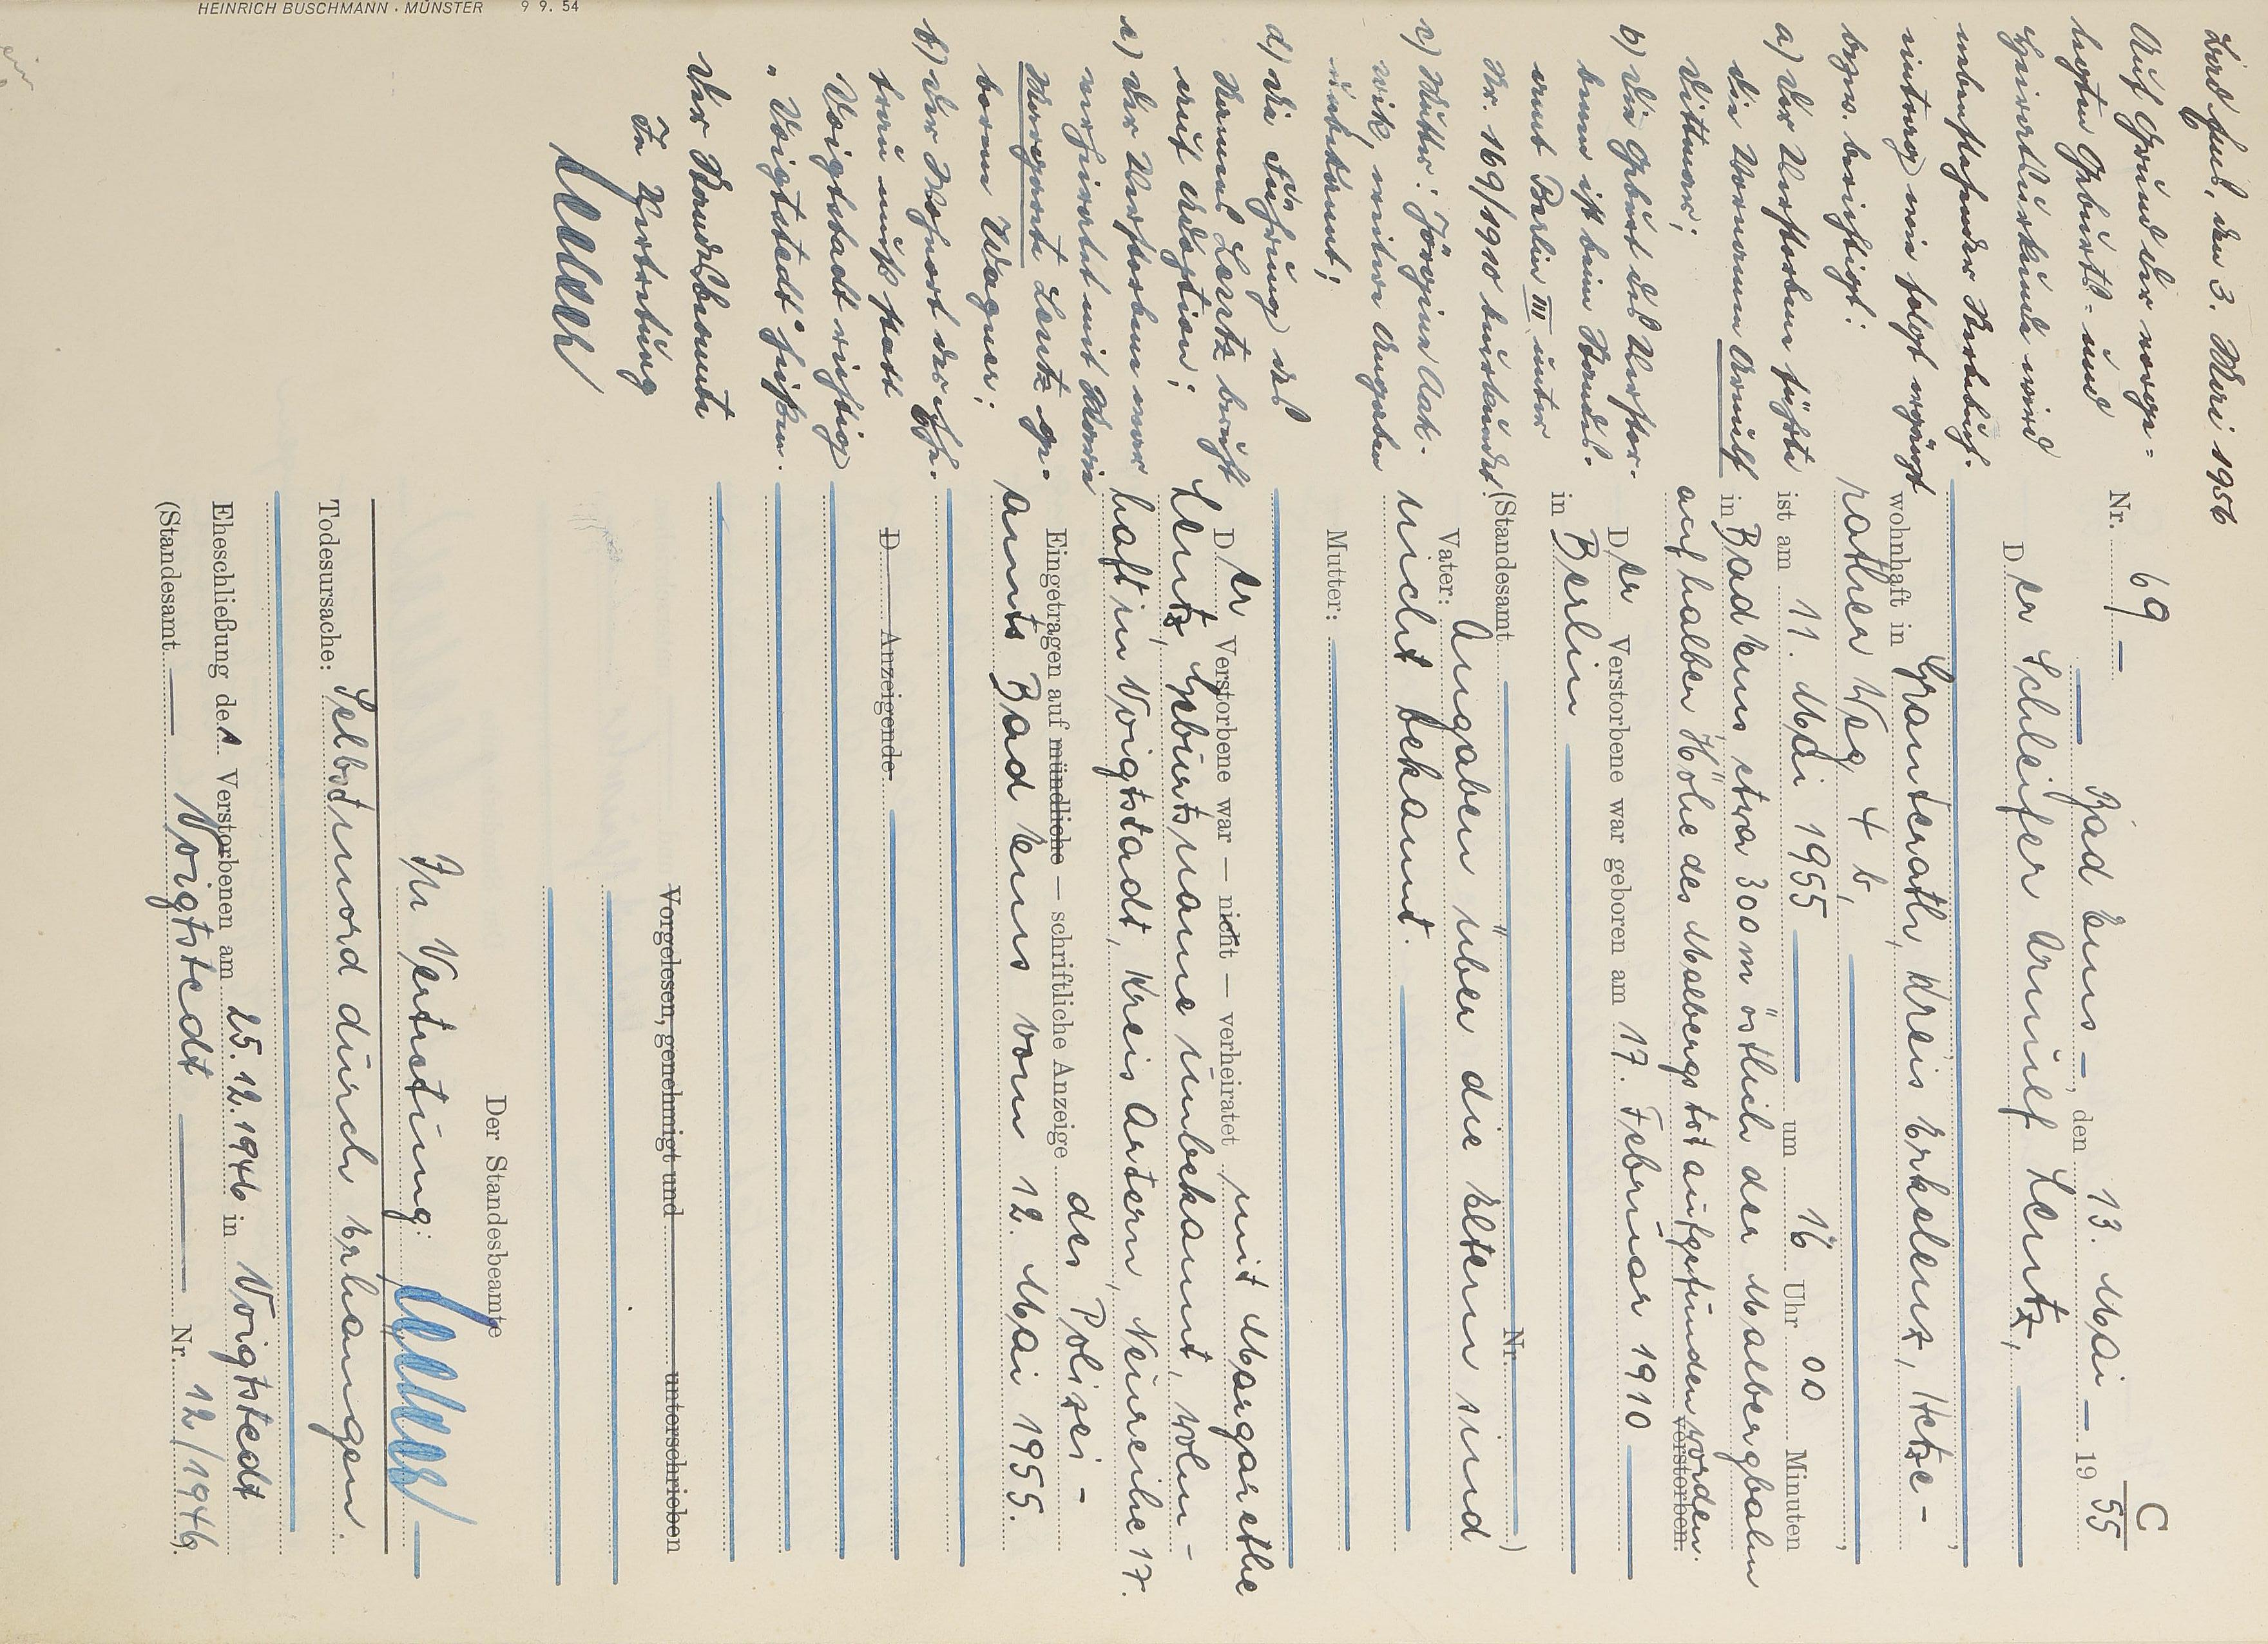 C
Nr. 69 —
Bad Ems —, den 13. Mai — 19 55
Der Schleifer Arnulf Lentz,
wohnhaft in Granterath, Kreis Erkelenz, Hetze-
rather Weg 4 b,
ist am 11. Mai 1955 um 16 Uhr 00 Minuten
in Bad Ems, etwa 300 m östlich der Malbergbahn
auf halber Höhe des Malbergs tot aufgefunden worden.
verstorben.
Der Verstorbene war geboren am 17. Februar 1910
in Berlin
(Standesamt Nr. )
Vater: Angaben über die Eltern sind
nicht bekannt.
Mutter:
Der Verstorbene war — nicht — verheiratet mit Margarethe
Lentz, Geburtsname unbekannt, wohn-
haft in Voigtstadt, Kreis Artern, Neureihe 17.
Eingetragen auf mündliche — schriftliche Anzeige des Polizei-
amts Bad Ems vom 12. Mai 1955.
D Anzeigende
Vorgelesen, genehmigt und unterschrieben
Der Standesbeamte
In Vertretung:
Todesursache: Selbstmord durch Erhängen.
Eheschließung des Verstorbenen am 25.12.1946 in Voigtstedt
(Standesamt — Voigtstedt — Nr. 12/1946).
Bad Ems, den 3. Mai 1956
Auf Grund der vorge=
legten Geburts- und
Heiratsurkunde wird
nebenstehender Sterbebuch-
eintrag wie folgt ergänzt
bezw. berichtigt:
a) Der Verstorbene führte
die Vornamen Arnulf
b) Die Geburt des Verstor-
benen ist beim Standes-
amt Berlin III unter
Nr. 169/1910 beurkundet.
c) Mutter:
weitere Angaben
unbekannt;
d) die Führung des
Namens Lentz beruht
auf Adoption;
e) Der Verstorbene war
verheiratet mit Maria
Margarete Lentz ge-
borene Wagner;
f) Der Wohnort der Ehe-
frau muß statt
Voigtstadt richtig
"Voigtstedt" heißen.
Der Standesbeamte
In Vertretung
HEINRICH BUSCHMANN · MÜNSTER 9 9. 54